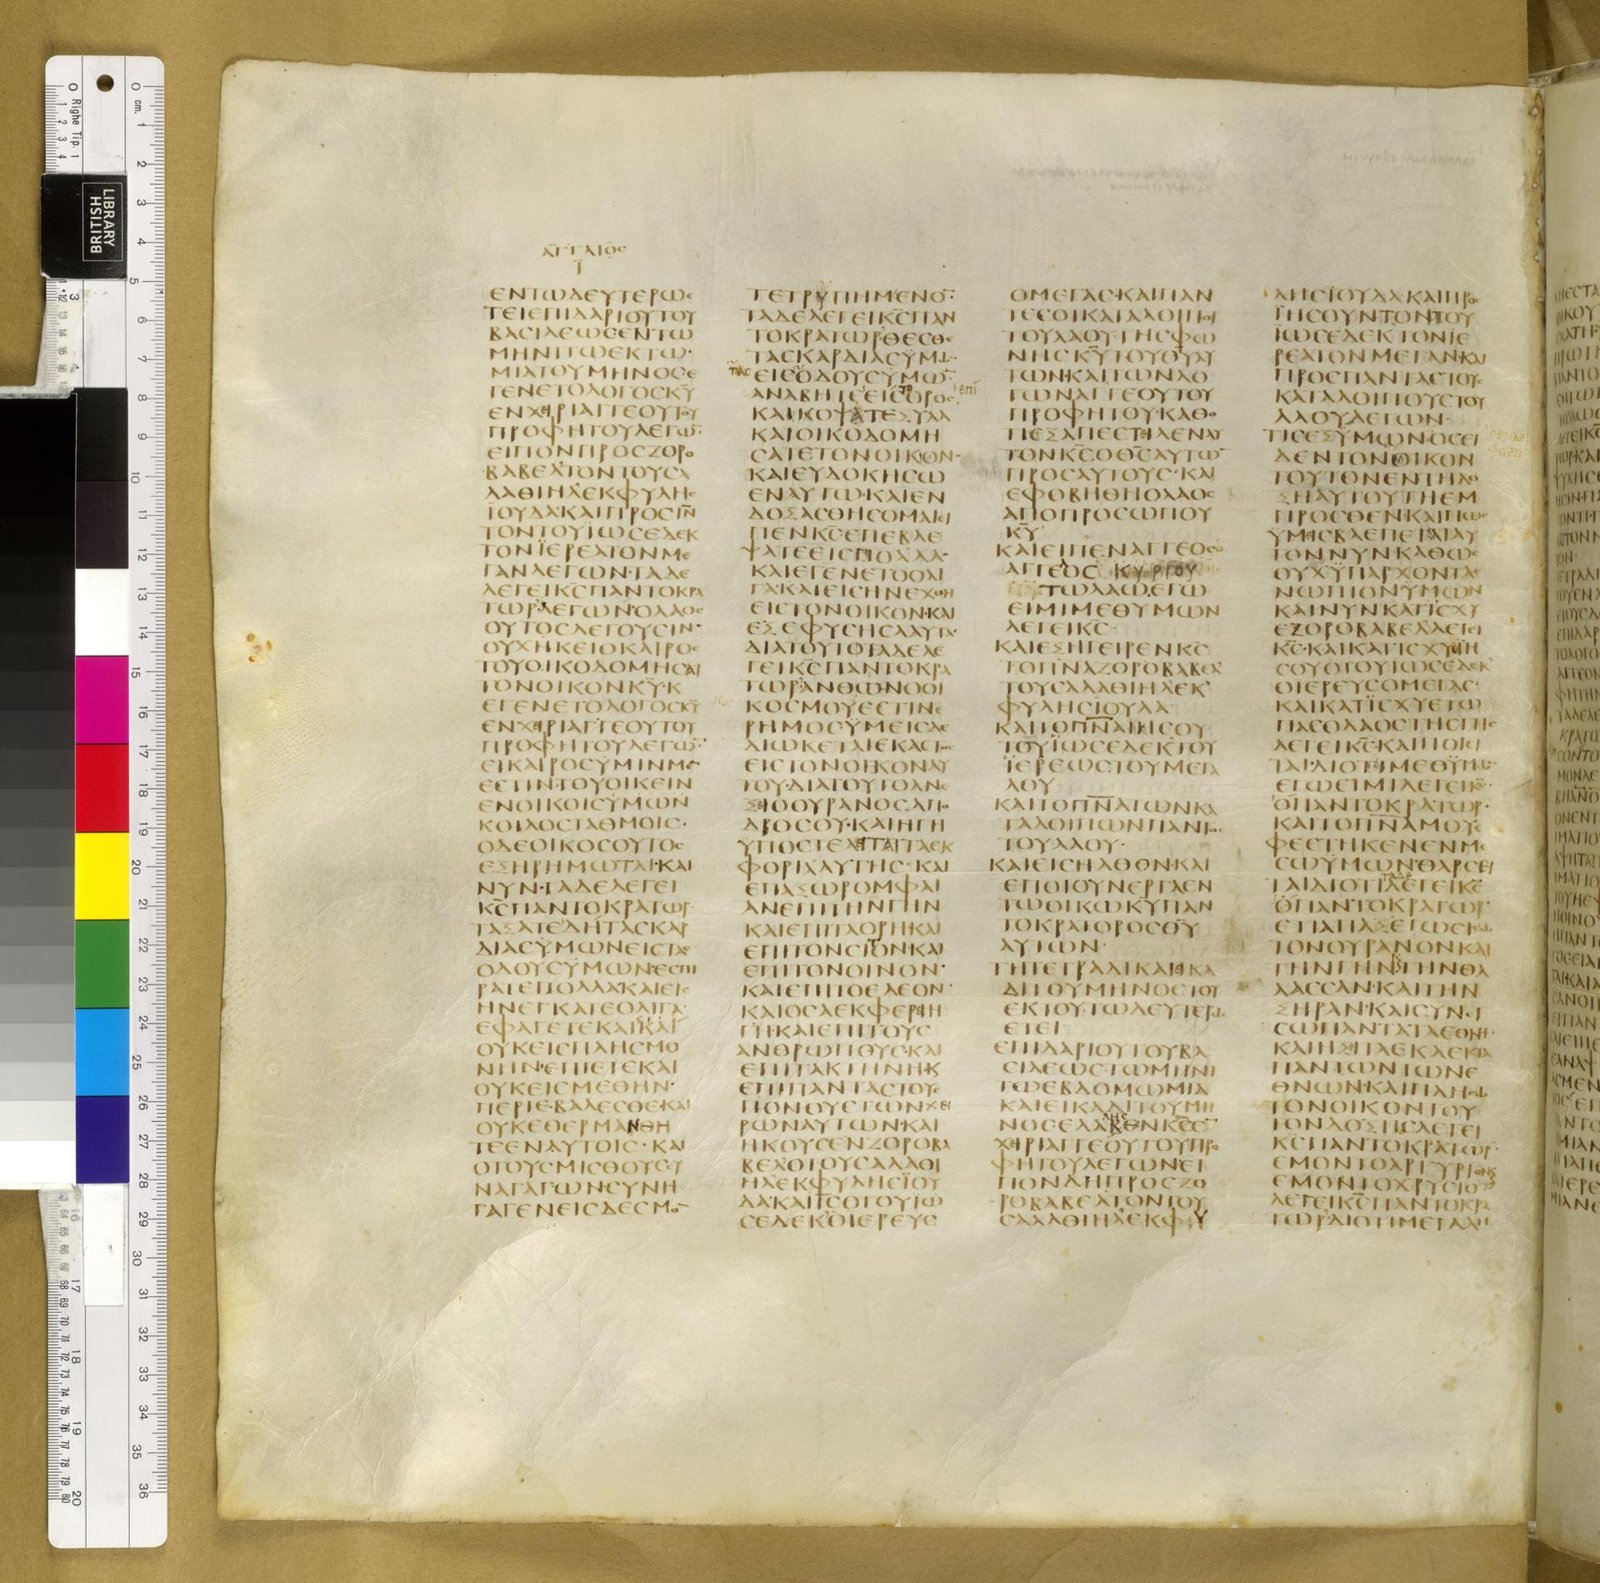 BRITISH
LIBRARY
ΑΓΓΑΙΟΣ
Ι
ΕΝΤΩΔΕΥΤΕΡΩΕ
ΤΕΙΕΠΙΔΑΡΙΟΥΤΟΥ
ΒΑCΙΛΕΩCΕΝΤΩ
ΜΗΝΙΤΩΕΚΤΩ·
ΜΙΑΤΟΥΜΗΝΟCΕ
ΓΕΝΕΤΟΛΟΓΟCΚΥ
ΕΝΧΙΡΙΑΓΓΕΟΥΤΟΥ
ΠΡΟΦΗΤΟΥΛΕΓΩ̅
ΕΙΠΟΝΠΡΟCΖΟΡΟ
ΒΑΒΕΛΤΟΝΤΟΥCΑ
ΛΑΘΙΗΛΕΚΦΥΛΗC
ΙΟΥΔΑΚΑΙΠΡΟCΙΝ
ΤΟΝΤΟΥΙΩCΕΔΕΚ
ΤΟΝΪΕΡΕΑΤΟΝΜΕ
ΓΑΝΛΕΓΩΝ·ΤΑΔΕ
ΛΕΓΕΙΚCΠΑΝΤΟΚΡΑ
ΤΩΡΛΕΓΩΝΟΛΑΟC
ΟΥΤΟCΛΕΓΟΥCΙΝ·
ΟΥΧΗΚΕΙΟΚΑΙΡΟC
ΤΟΥΟΙΚΟΔΟΜΗCΑΙ
ΤΟΝΟΙΚΟΝΚΥ·Κ
ΕΓΕΝΕΤΟΛΟΓΟCΚΥ
ΕΝΧΙΡΙΑΓΓΕΟΥΤΟΥ
ΠΡΟΦΗΤΟΥΛΕΓΩ̅
ΕΙΚΑΙΡΟCΥΜΙΝΜΕ
ΕCΤΙΝ·ΤΟΥΟΙΚΕΙΝ
ΕΝΟΙΚΟΙCΥΜΩΝ
ΚΟΙΛΟCΤΑΘΜΟΙC·
ΟΔΕΟΙΚΟCΟΥΤΟC
ΕΞΗΡΗΜΩΤΑΙ·ΚΑΙ
ΝΥΝ·ΤΑΔΕΛΕΓΕΙ
ΚCΠΑΝΤΟΚΡΑΤΩΡ
ΤΑΞΑΤΕΔΗΤΑCΚΑΡ
ΔΙΑCΥΜΩΝΕΙCΤΑC
ΟΔΟΥCΥΜΩΝΕCΠΙ
ΡΑΤΕΠΟΛΛΑΚΑΙΕΙC
ΗΝΕΓΚΑΤΕΟΛΙΓΑ·
ΕΦΑΓΕΤΕΚΑΙΚΑΙ
ΟΥΚΕΙCΠΛΗCΜΟ
ΝΗΝ·ΕΠΙΕΤΕΚΑΙ
ΟΥΚΕΙCΜΕΘΗΝ·
ΠΕΡΙΕΒΑΛΕCΘΕΚΑΙ
ΟΥΚΕΘΕΡΜΑΝΘΗ
ΤΕΕΝΑΥΤΟΙC·ΚΑΙ
ΟΤΟΥCΜΙCΘΟΥCCΥ
ΝΑΓΑΓΩΝCΥΝΗ
ΓΑΓΕΝΕΙCΔΕCΜΟ
ΤΕΤΡΥΠΗΜΕΝΟΝ·
ΤΑΔΕΛΕΓΕΙΚCΠΑΝ
ΤΟΚΡΑΤΩΡΘΕCΘΕ
ΤΑCΚΑΡΔΙΑCΥΜΩ
ΕΙCΟΔΟΥCΥΜΩ̅
ΑΝΑΒΗΤΕΕΙCΟΡΟC
ΚΑΙΚΟΨΑΤΕΞΥΛΑ
ΚΑΙΟΙΚΟΔΟΜΗ
CΑΤΕΤΟΝΟΙΚΟΝ·
ΚΑΙΕΥΔΟΚΗCΩ
ΕΝΑΥΤΩ·ΚΑΙΕΝ
ΔΟΞΑCΘΗCΟΜΑΙΕΙ
ΠΕΝΚCΕΠΕΒΛΕ
ΨΑΤΕΕΙCΠΟΛΛΑ·
ΚΑΙΕΓΕΝΕΤΟΟΛΙ
ΓΑ·ΚΑΙΕΙCΗΝΕΧΘΗ
ΕΙCΤΟΝΟΙΚΟΝ·ΚΑΙ
ΕΞΕΦΥCΗCΑΑΥΤΑ·
ΔΙΑΤΟΥΤΟΤΑΔΕΛΕ
ΓΕΙΚCΠΑΝΤΟΚΡΑ
ΤΩΡΑΝΘΩΝΟΟΙ
ΚΟCΜΟΥΕCΤΙΝΕ
ΡΗΜΟCΥΜΕΙCΔΕ
ΔΙΩΚΕΤΑΙΕΚΑCΤΟC
ΕΙCΤΟΝΟΙΚΟΝΑΥ
ΤΟΥ·ΔΙΑΤΟΥΤΟΑΝΕ
ΞΙΟΟΥΡΑΝΟCΑΠΟ
ΔΡΟCΟΥ·ΚΑΙΗΓΗ
ΥΠΟCΤΕΛΙΤΑΙΤΑΕΚ
ΦΟΡΙΑΑΥΤΗC·ΚΑΙ
ΕΠΑΞΩΡΟΜΦΑΙ
ΑΝΕΠΙΤΗΝΓΗΝ
ΚΑΙΕΠΙΤΑΟΡΗ·ΚΑΙ
ΕΠΙΤΟΝCΙΤΟΝΚΑΙ
ΕΠΙΤΟΝΟΙΝΟΝ·
ΚΑΙΕΠΙΤΟΕΛΕΟΝ·
ΚΑΙΟCΑΕΚΦΕΡΙΗ
ΓΗ·ΚΑΙΕΠΙΤΟΥC
ΑΝΘΡΩΠΟΥC·ΚΑΙ
ΕΠΙΤΑΚΤΗΝΗ·Κ
ΕΠΙΠΑΝΤΑCΤΟΥC
ΠΟΝΟΥCΤΩΝΧΕΙ
ΡΩΝΑΥΤΩΝ·ΚΑΙ
ΗΚΟΥCΕΝΖΟΡΟΒΑ
ΒΕΛΟΤΟΥCΑΛΑΘΙ
ΗΛΕΚΦΥΛΗCΪΟΥ
ΔΑ·ΚΑΙΙCΟΤΟΥΙΩ
CΕΔΕΚΟΙΕΡΕΥC
ΟΜΕΓΑC·ΚΑΙΠΑΝ
ΤΕCΟΙΚΑΤΑΛΟΙΠΟΙ
ΤΟΥΛΑΟΥ·ΤΗCΦΩ
ΝΗCΚΥΤΟΥΘΥΑΥ
ΤΩΝ·ΚΑΙΤΩΝΛΟ
ΓΩΝΑΓΓΕΟΥΤΟΥ
ΠΡΟΦΗΤΟΥ·ΚΑΘΟ
ΤΙΕΞΑΠΕCΤΙΛΕΝΑΥ
ΤΟΝΚCΟΘCΑΥΤΩ̅
ΠΡΟCΑΥΤΟΥC·ΚΑΙ
ΕΦΟΒΗΘΗΟΛΑΟC
ΑΠΟΠΡΟCΩΠΟΥ
ΚΥ
ΚΑΙΕΙΠΕΝΑΓΓΕΟC
ΑΓΓΕΛΟC ΚΥΡΙΟΥ
ΤΩΛΑΩ·ΕΓΩ
ΕΙΜΙΜΕΘΥΜΩΝ
ΛΕΓΕΙΚC
ΚΑΙΕΞΗΓΕΙΡΕΝΚC
ΤΟΠΝΑΖΟΡΟΒΑΒΕΛ
ΤΟΥCΑΛΑΘΙΗΛΕΚ
ΦΥΛΗCΙΟΥΔΑ
ΚΑΙΤΟΠΝΑΙΗCΟΥ
ΤΟΥΪΩCΕΔΕΚΤΟΥ
ΪΕΡΕΩCΤΟΥΜΕΓΑ
ΛΟΥ
ΚΑΙΤΟΠΝΑΤΩΝΚΑ
ΤΑΛΟΙΠΩΝΠΑΝΤΟC
ΤΟΥΛΑΟΥ·
ΚΑΙΕΙCΗΛΘΟΝ·ΚΑΙ
ΕΠΟΙΟΥΝΕΡΓΑΕΝ
ΤΩΟΙΚΩΚΥΠΑΝ
ΤΟΚΡΑΤΟΡΟCΘΥ
ΑΥΤΩΝ·
ΤΗΤΕΤΡΑΔΙΚΑΙΕΙΚΑ
ΔΙΤΟΥΜΗΝΟCΤΟΥ
ΕΚΤΟΥ·ΤΩΔΕΥΤΕΡΩ
ΕΤΕΙ
ΕΠΙΔΑΡΙΟΥΤΟΥΒΑ
CΙΛΕΩC·ΤΩΜΗΝΙ
ΤΩΕΒΔΟΜΩΜΙΑ
ΚΑΙΕΙΚΑΔΙΤΟΥΜΗ
ΝΟCΕΛΑΛΗCΕΝΚC
ΧΙΡΙΑΓΓΕΟΥΤΟΥΠΡΟ
ΦΗΤΟΥΛΕΓΩΝΕΙ
ΠΟΝΔΗΠΡΟCΖΟ
ΡΟΒΑΒΕΛΤΟΝΤΟΥ
CΑΛΑΘΙΗΛΕΚΦΥ
ΛΗCΪΟΥΔΑ·ΚΑΙΠΡΟC
ΙΗCΟΥΝΤΟΝΤΟΥ
ΙΩCΕΔΕΚΤΟΝΙΕ
ΡΕΑΤΟΝΜΕΓΑΝ·ΚΑΙ
ΠΡΟCΠΑΝΤΑCΤΟΥC
ΚΑΤΑΛΟΙΠΟΥCΤΟΥ
ΛΑΟΥΛΕΓΩΝ·
ΤΙCΕΞΥΜΩΝΟCΕΙ
ΔΕΝΤΟΝΟΙΚΟΝ
ΤΟΥΤΟΝΕΝΤΗΔΟ
ΞΗΑΥΤΟΥΤΗΕΜ
ΠΡΟCΘΕΝ·ΚΑΙΠΩC
ΥΜΙCΒΛΕΠΕΤΑΙΑΥ
ΤΟΝΝΥΝ·ΚΑΘΩC
ΟΥΧΫΠΑΡΧΟΝΤΑ
ΝΩΠΙΟΝΥΜΩΝ
ΚΑΙΝΥΝΚΑΤΙCΧΥ
ΕΖΟΡΟΒΑΒΕΛΛΕΓΕΙ
ΚC·ΚΑΙΚΑΤΙCΧΥΕΙΗ
CΟΥΟΤΟΥΙΩCΕΔΕΚ
ΟΙΕΡΕΥCΟΜΕΓΑC·
ΚΑΙΚΑΤΙCΧΥΕΤΩ
ΠΑCΟΛΑΟCΤΗCΓΗC
ΛΕΓΕΙΚC·ΚΑΙΠΟΙΕΙ
ΤΑΙ·ΔΙΟΤΙΜΕΘΥΜΩ
ΕΓΩΕΙΜΙΛΕΓΕΙΚC
ΟΠΑΝΤΟΚΡΑΤΩΡ·
ΚΑΙΤΟΠΝΑΜΟΥ
ΦΕCΤΗΚΕΝΕΝΜΕ
CΩΥΜΩΝ·ΘΑΡCΕΙ
ΤΑΙΔΙΟΤΙΤΑΔΕΛΕΓΕΙΚC
ΟΠΑΝΤΟΚΡΑΤΩΡ·
ΕΤΙΑΠΑΞΕΓΩCΕΙΩ
ΤΟΝΟΥΡΑΝΟΝΚΑΙ
ΤΗΝΓΗΝΚΑΙΤΗΝΘΑ
ΛΑCCΑΝ·ΚΑΙΤΗΝ
ΞΗΡΑΝ·ΚΑΙCΥΝCΙ
CΩΠΑΝΤΑΤΑΕΘΝΗ·
ΚΑΙΗΞΙΤΑΕΚΛΕΚΤΑ
ΠΑΝΤΩΝΤΩΝΕ
ΘΝΩΝ·ΚΑΙΠΛΗCΩ
ΤΟΝΟΙΚΟΝΤΟΥ
ΤΟΝΔΟΞΗCΛΕΓΕΙ
ΚCΠΑΝΤΟΚΡΑΤΩΡ·
ΕΜΟΝΤΟΑΡΓΥΡΙΟΝΚΕ
ΕΜΟΝΤΟΧΡΥCΙΟΝ
ΛΕΓΕΙΚCΠΑΝΤΟΚΡΑ
ΤΩΡΔΙΟΤΙΜΕΓΑΛΗ